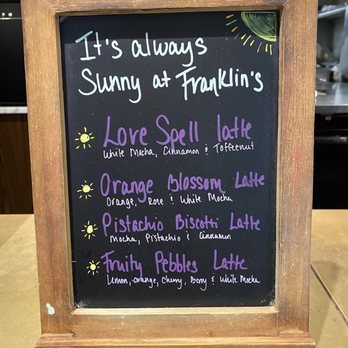 It's always
Sunny at Franklin's
Love Spell latte
White Mocha, Cinnamon & Toffeenut
Orange Blossom Latte
Orange, Rose & White Mocha
Pistachio Biscotti Latte
Mocha, Pistachio & Cinnamon
Fruity Pebbles Latte
Lemon, orange, Cherry, Berry & White Mocha